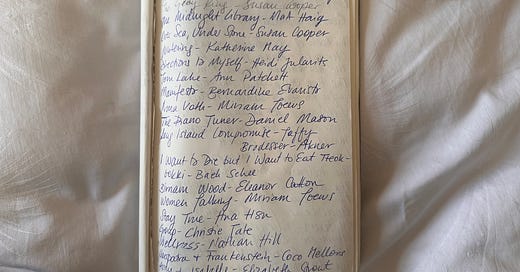 Grey King - Susan Cooper
Midnight Library - Matt Haig
Sea, Under Stone - Susan Cooper
Wintering - Katherine May
Directions to Myself - Heidi Julavits
Tom Lake - Ann Patchett
Manifesto - Bernardine Evaristo
Irma Voth - Miriam Toews
The Piano Tuner - Daniel Mason
Long Island Compromise - Taffy
Brodesser-Akner
I Want to Die but I Want to Eat Tteok-
bokki - Baek Sehee
Birnam Wood - Eleanor Catton
Women Talking - Miriam Toews
Stay True - Hua Hsu
Group - Christie Tate
Wellness - Nathan Hill
Cleopatra & Frankenstein - Coco Mellors
Isabelle - Elizabeth Strout